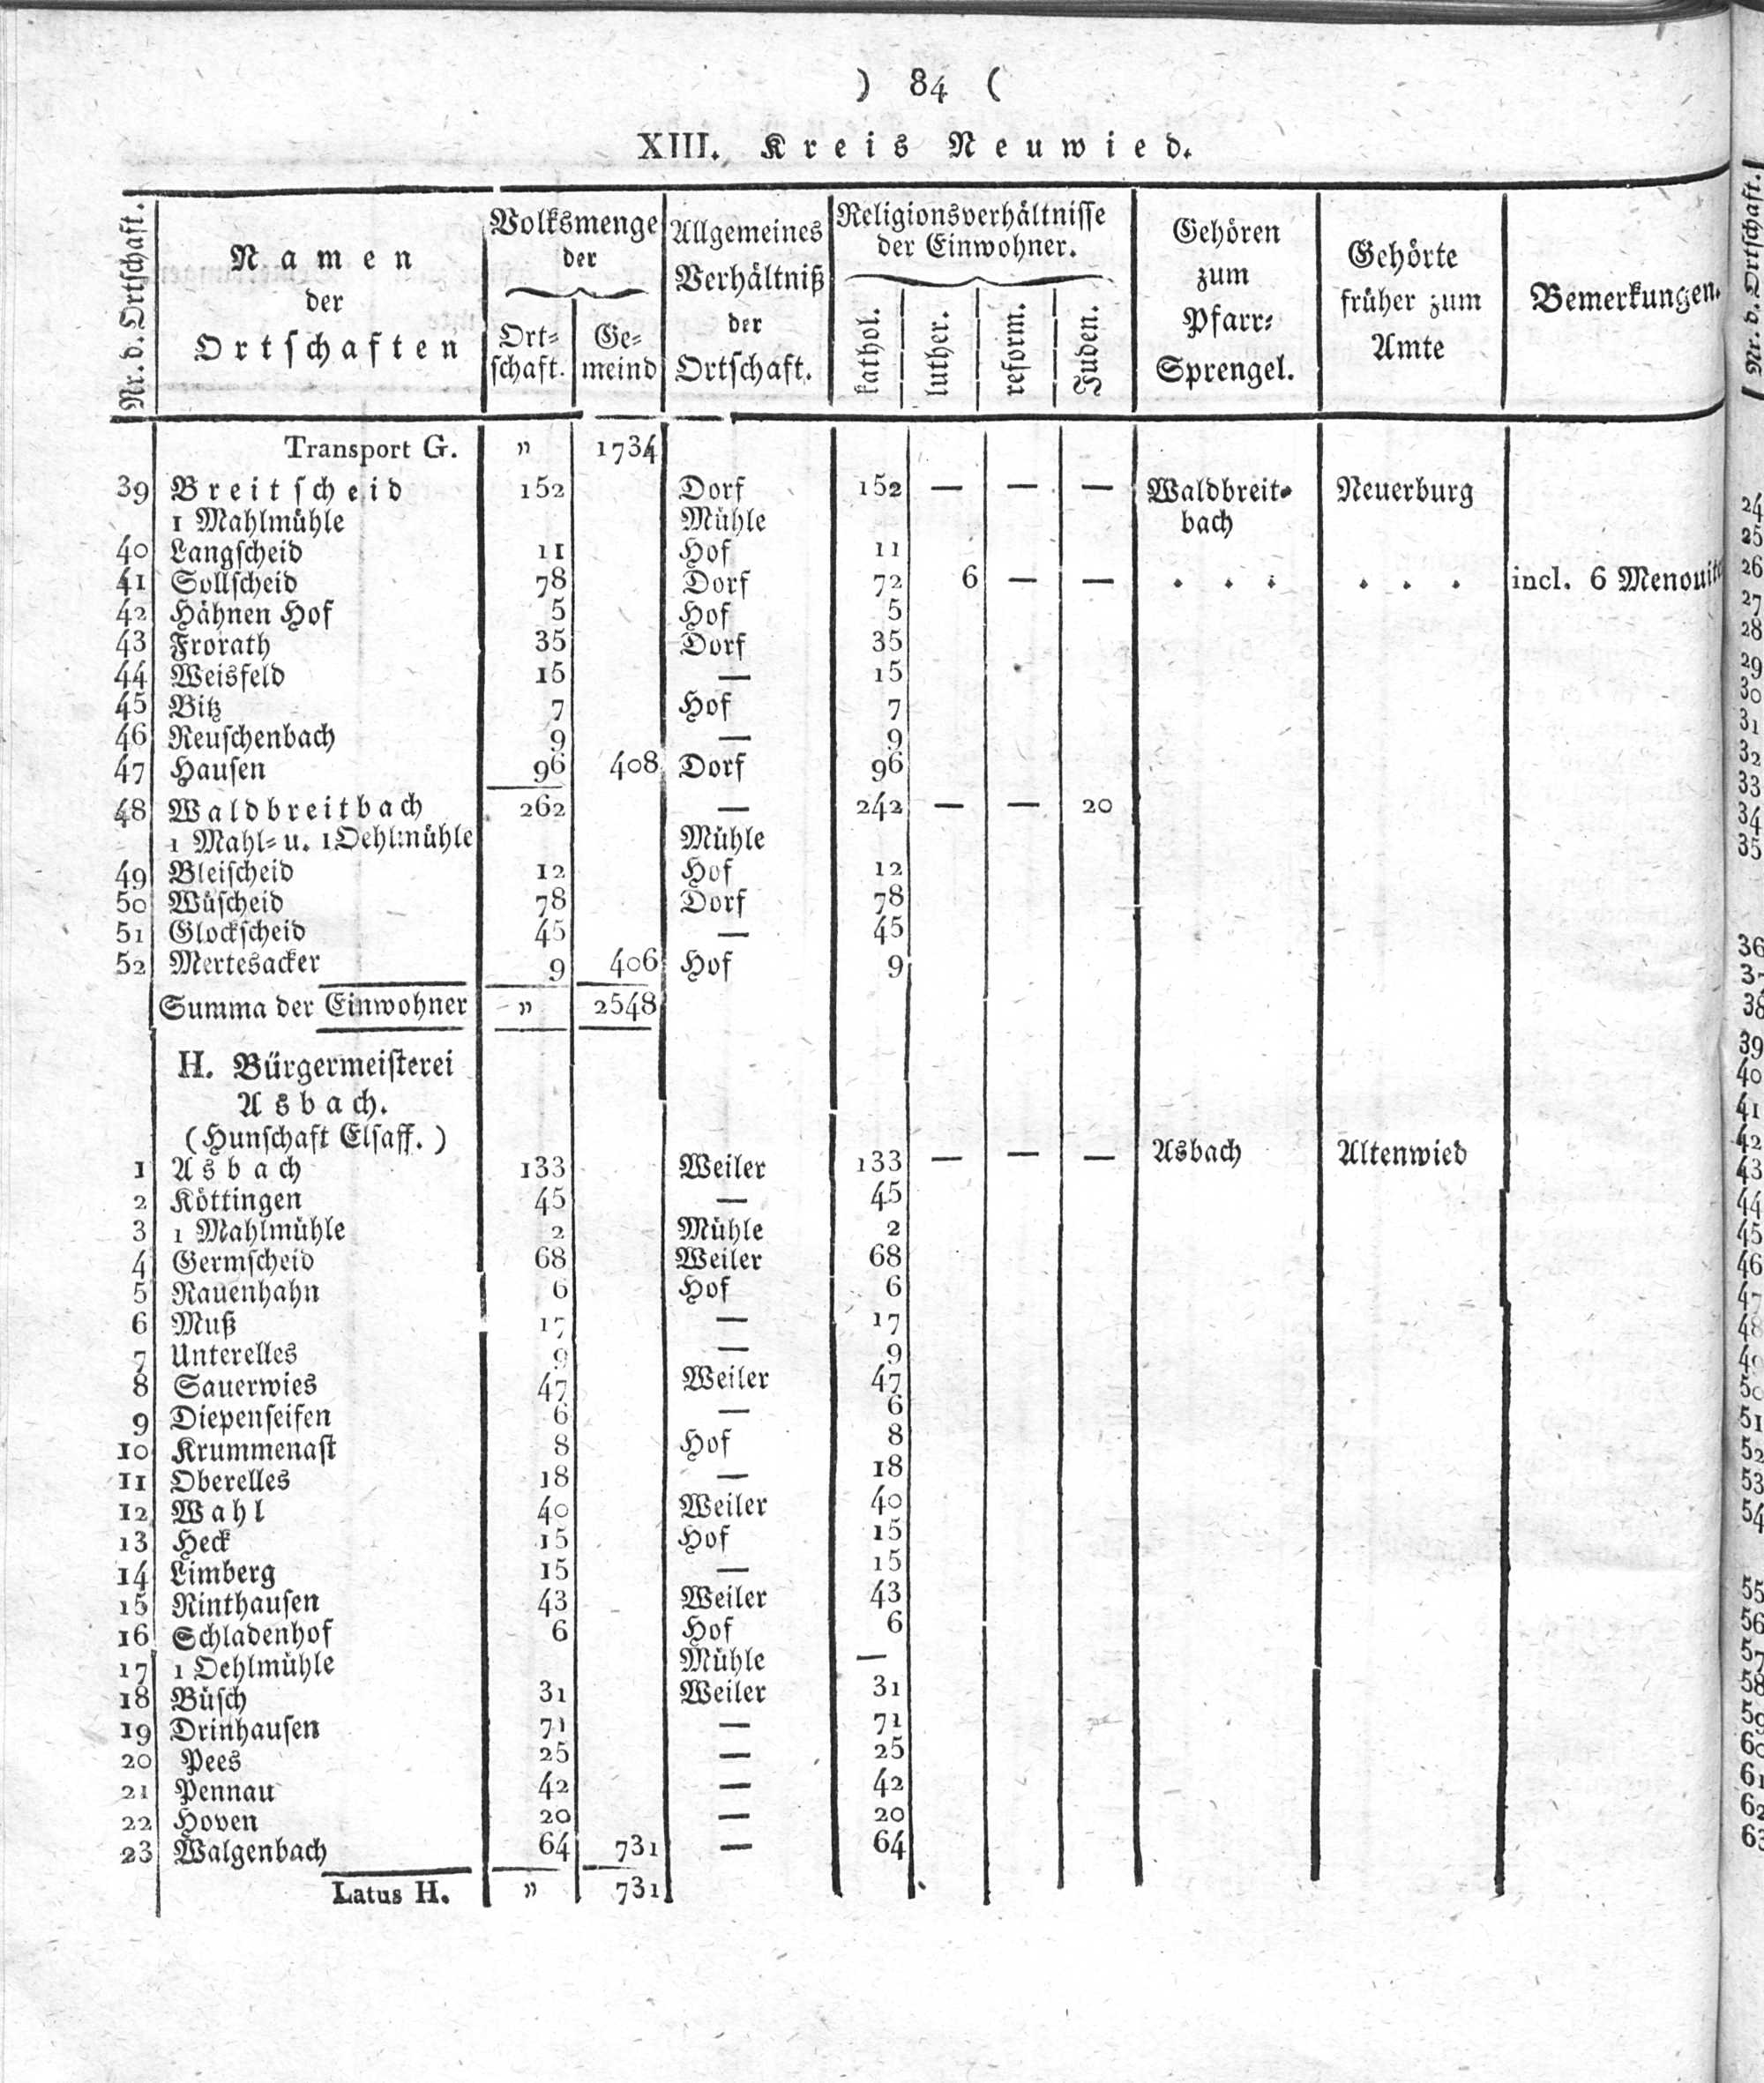 ) 84 (
XIII. Kreis Neuwied.
Nr. d. Ortschaft.
Namen
der
Ortschaften
Volksmenge
der
Ort-
schaft.
Ge-
meind
Allgemeines
Verhältniß
der
Ortschaft.
Religionsverhältnisse
der Einwohner.
kathol.
luther.
reform.
Juden.
Gehören
zum
Pfarr-
Sprengel.
Gehörte
früher zum
Amte
Bemerkungen.
Transport G. „ 1734
39 Breitscheid 152 Dorf 152 — — — Waldbreit- Neuerburg
1 Mahlmühle Mühle bach
40 Langscheid 11 Hof 11
41 Sollscheid 78 Dorf 72 6 — — . . . . . . incl. 6 Menouit
42 Hähnen Hof 5 Hof 5
43 Frorath 35 Dorf 35
44 Weisfeld 15 — 15
45 Bitz 7 Hof 7
46 Reuschenbach 9 — 9
47 Hausen 96 408 Dorf 96
48 Waldbreitbach 262 — 242 — — 20
1 Mahl- u. 1 Oehlmühle Mühle
49 Bleischeid 12 Hof 12
50 Wüscheid 78 Dorf 78
51 Glockscheid 45 — 45
52 Mertesacker 9 406 Hof 9
Summa der Einwohner „ 2548
H. Bürgermeisterei
Asbach.
(Hunschaft Elsaff.)
1 Asbach 133 Weiler 133 — — — Asbach Altenwied
2 Köttingen 45 — 45
3 1 Mahlmühle 2 Mühle 2
4 Germscheid 68 Weiler 68
5 Rauenhahn 6 Hof 6
6 Muß 17 — 17
7 Unterelles 9 — 9
8 Sauerwies 47 Weiler 47
9 Diepenseifen 6 — 6
10 Krummenast 8 Hof 8
11 Oberelles 18 — 18
12 Wahl 40 Weiler 40
13 Heck 15 Hof 15
14 Limberg 15 — 15
15 Rinthausen 43 Weiler 43
16 Schladenhof 6 Hof 6
17 1 Oehlmühle Mühle —
18 Büsch 31 Weiler 31
19 Drinhausen 71 — 71
20 Pees 25 — 25
21 Pennau 42 — 42
22 Hoven 20 — 20
23 Walgenbach 64 731 — 64
Latus H. „ 731
Nr. d. Ortschaft.
24
25
26
27
28
29
30
31
32
33
34
35
36
37
38
39
40
41
42
43
44
45
46
47
48
49
50
51
52
53
54
55
56
57
58
59
60
61
62
63